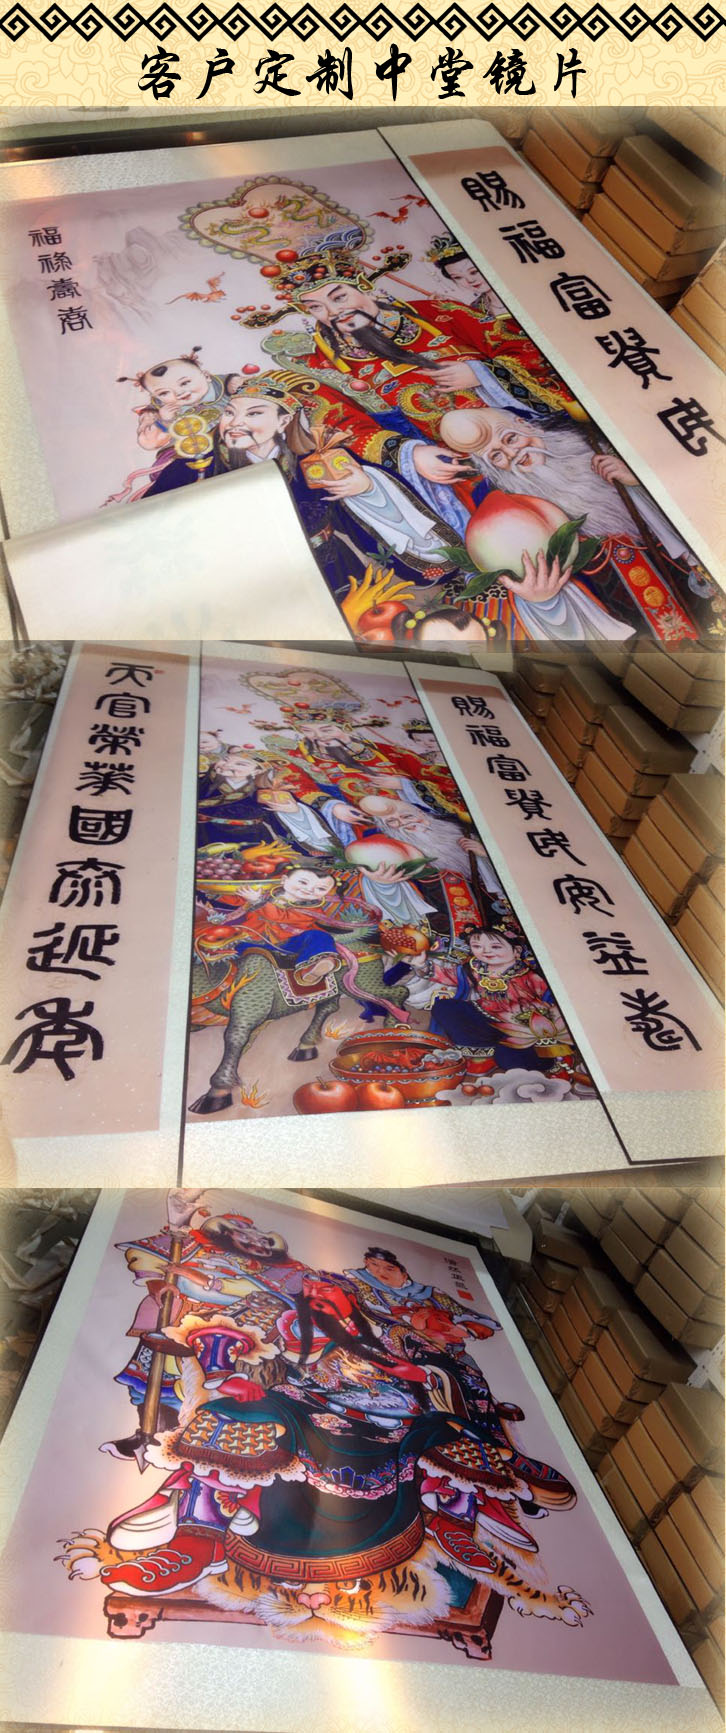 客户定制中堂镜片
福祿壽
賜福富貴民
天官榮華國泰延年
賜福富貴民安益壽